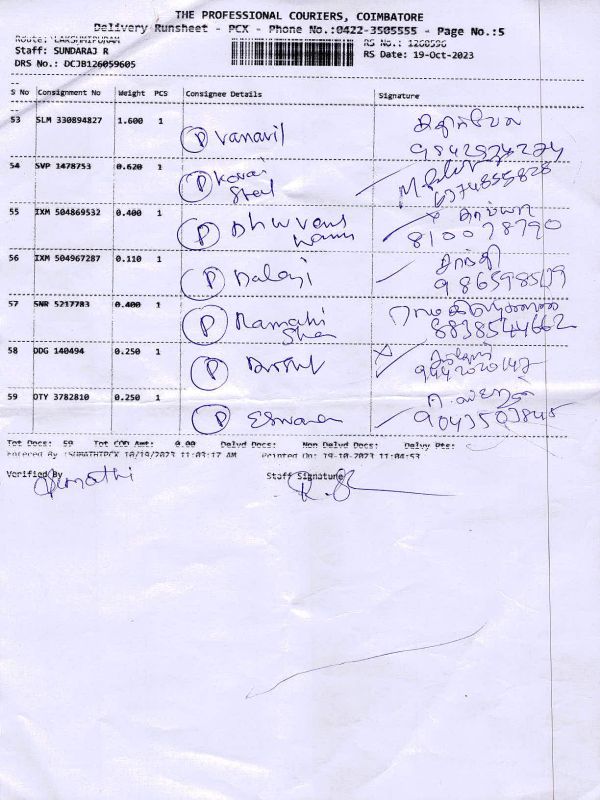 THE PROFESSIONAL COURIERS, COIMBATORE
Delivery Runsheet - PCX - Phone No.:0422-3505555 - Page No.:5
Route: LAKSHMIPURAM
RS No.: 1260596
Staff: SUNDARAJ R
RS Date: 19-Oct-2023
DRS No.: DCJB126059605
S No Consignment No Weight PCS Consignee Details Signature
53 SLM 330894827 1.600 1
P Vanavil
9842524274
54 SVP 1478753 0.620 1
P Kovai
Steel
6374855828
55 IXM 504869532 0.400 1
P
810078790
56 IXM 504967287 0.110 1
P Balaji
சாந்தி
57 SNR 5217783 0.400 1
P Ramathi
8838544662
58 DDG 140494 0.250 1
P
9442020147
59 OTY 3782810 0.250 1
P Eswaran
9043503845
Tot Docs: 59 Tot COD Amt: 0.00 Delvd Docs: Non Delvd Docs: Delvy Pte:
Entered By :SUMATHIPCX 10/19/2023 11:03:17 AM Printed On: 19-10-2023 11:04:53
Verified By
Staff Signature